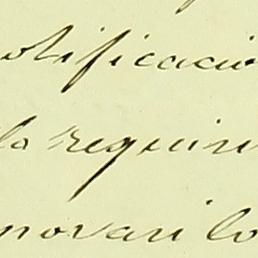 otificacio
lo requiri
novari lo